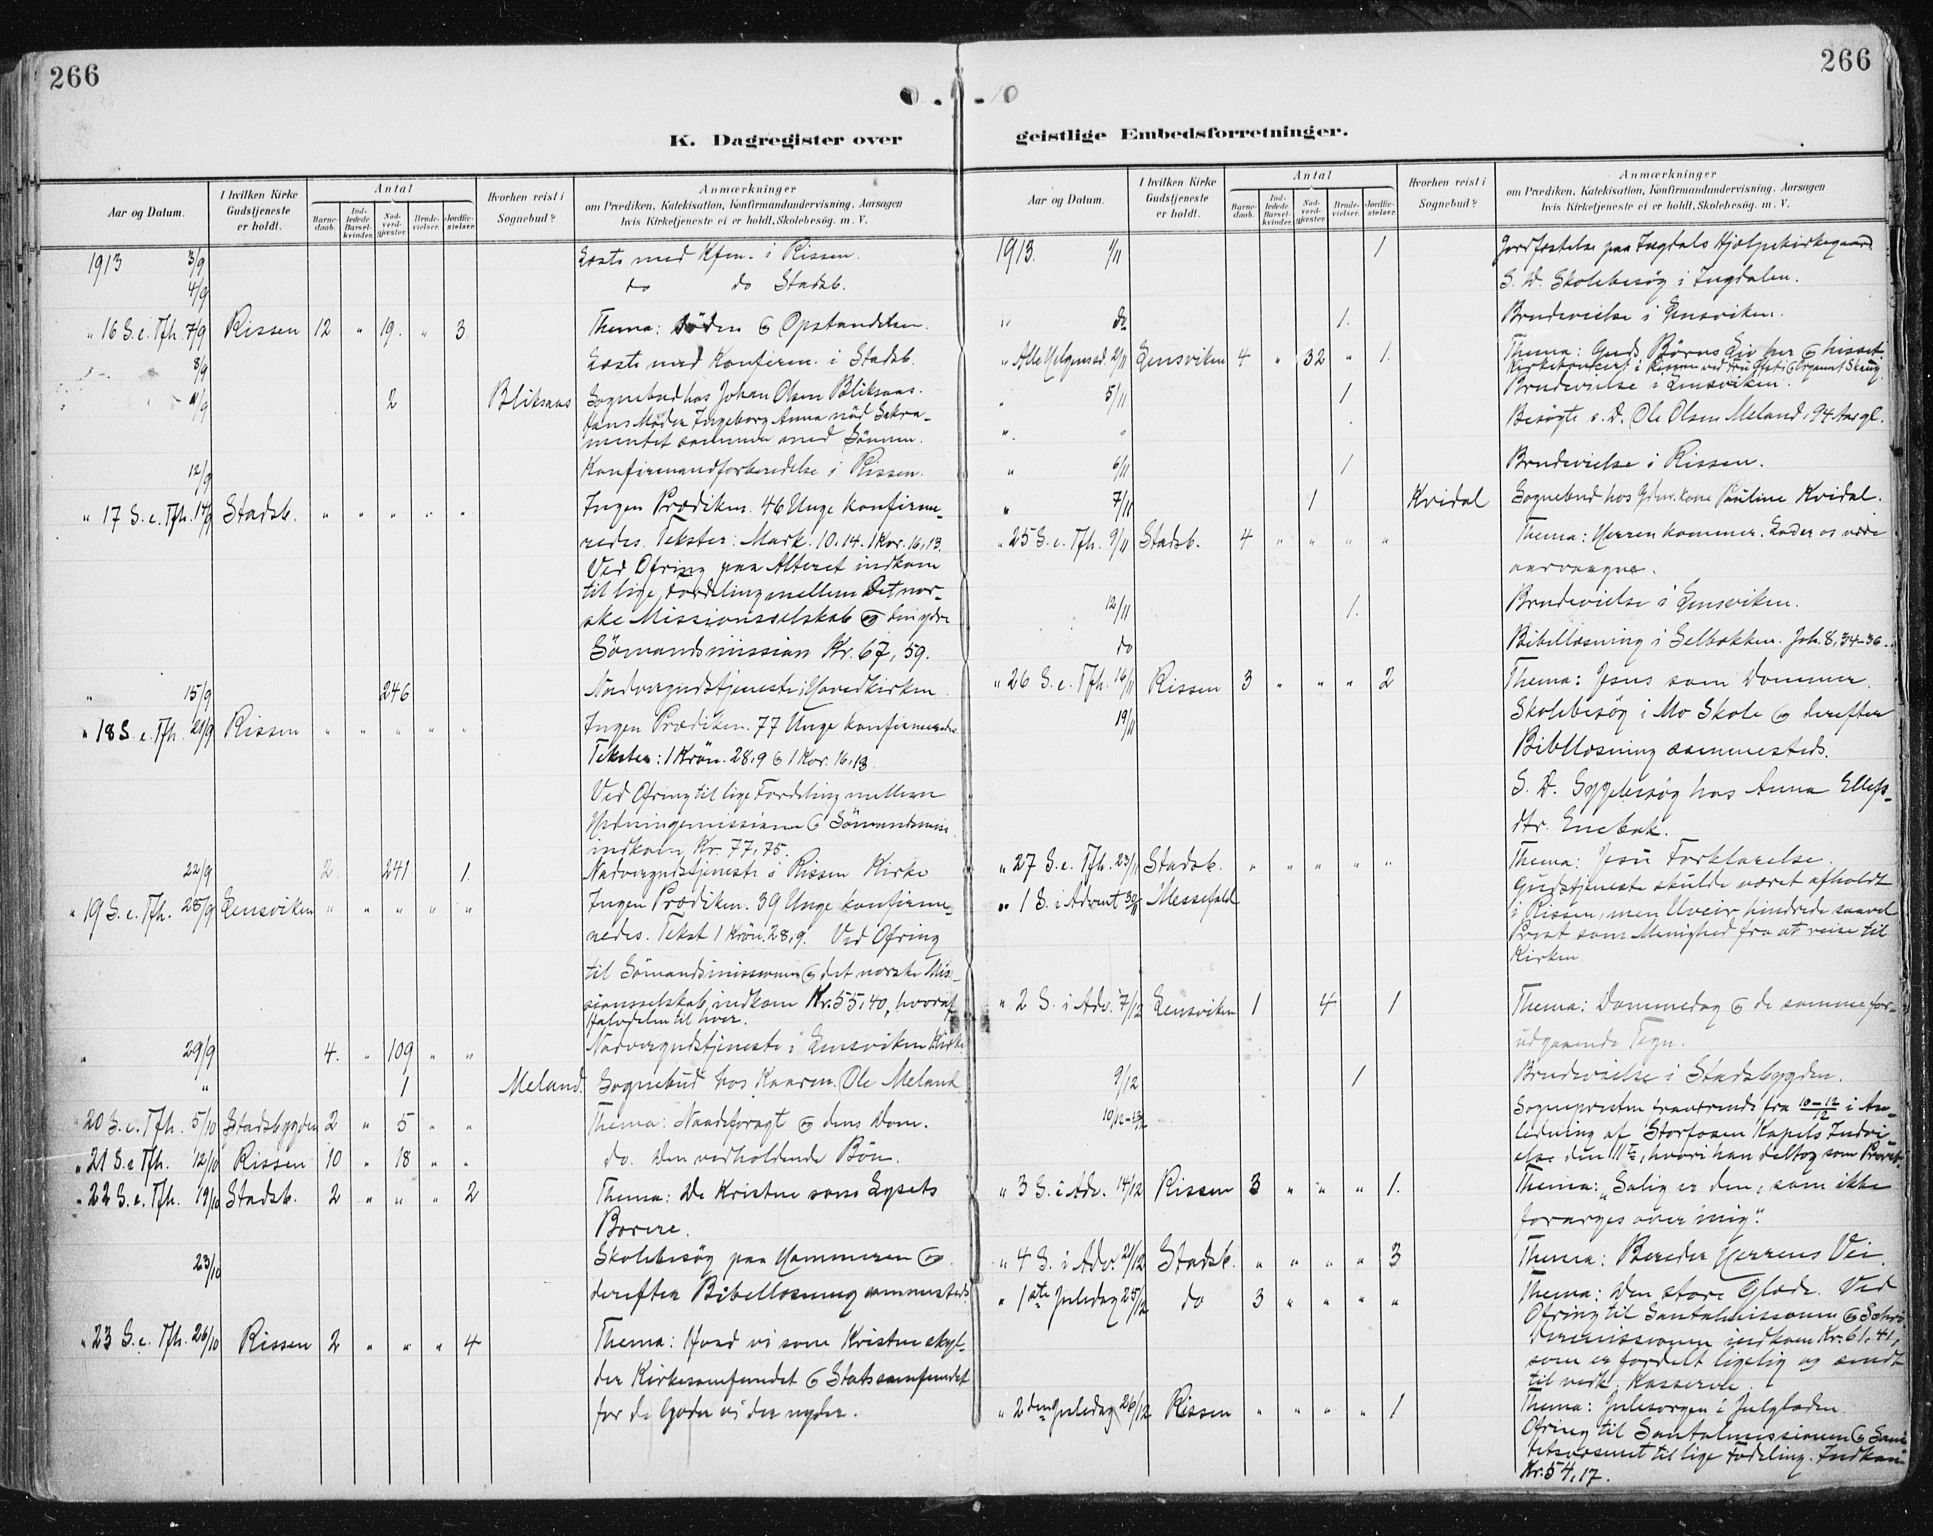 266
266
K. Dagregister over geistlige Embedsforretninger.
Aar og Datum.
I hvilken Kirke Gudstjeneste er holdt.
Antal
Barne-daab.
Ind-ledede Barsel-kvinder.
Nad-verd-gjester
Brude-vielser.
Jordfæ-stelser
Hvorhen reist i Sognebud?
Anmærkninger
om Prædiken, Katekisation, Konfirmandundervisning, Aarsagen
hvis Kirketjeneste ei er holdt, Skolebesøg. m. V.
1913 3/9 Læste med Kfm. i Rissen.
4/9 do do Stadsb.
" 16 S. e. Tfh. 7/9 Rissen 12 " 19. " 3. Thema: Döden og Opstandelsen.
8/9 Læste med Konfirm. i Stadsb.
11/9 2 Bliksaas Sognebud hos Johan Olsen Bliksaas.
Hans Moder Ingeborg Anna nöd Sakra-
mentet sammen med Sönnen.
12/9 Konfirmandforberedelse i Rissen.
" 17 S. e. Tfh. 14/9 Stadsb. " " " " " Ingen Prædiken. 46 Unge konfirme-
redes. Tekster: Mark. 10.14. 1 Kor. 16,13.
Ved Ofring paa Alteret indkom
til lige Fordeling mellem Det nor-
ske Missionsselskab og den ydre
Sömandsmission Kr. 67,59.
" 15/9 246 Nadvergudstjeneste i Hovedkirken.
" 18 S. e. Tfh. 21/9 Rissen " " " " " Ingen Prædiken. 77 Unge konfirmeredes.
Tekster: 1 Krön. 28,9 og 1 Kor. 16,13.
Ved Ofring til lige Fordeling mellem
Hedningemissionen og Sömandsmiss.
indkom Kr. 77,75.
22/9 2. 241 1. Nadvergudstjeneste i Rissen Kirke
" 19 S. e. Tfh. 28/9 Lensviken " " " " " Ingen Prædiken. 39 Unge konfirme-
redes. Tekst 1 Krön. 28,9. Ved Ofring
til Sömandsmissionen og det norske Mis-
sionsselskab indkom Kr. 55,40, hvoraf
Halvdelen til hver.
" 29/9 4. " 109 " " Nadvergudstjeneste i Lensviken Kirke
" 1 Meland. Sognebud hos Kaarm. Ole Meland
" 20 S. e. Tfh. 5/10 Stadsbygden 2 " 5 " " Thema: Naadeforagt og dens Dom.
" 21 S. e Tfh. 12/10 Rissen 10 " 18 " " do. Den vedholdende Bön.
" 22 S. e. Tfh. 19/10 Stadsb. 2 " " " 2 Thema: De Kristne som Lysets
Borere.
23/10 Skolebesøg paa Hammeren og
derefter Bibellæsning sammesteds.
" 23 S. e. Tfh. 26/10 Rissen 2 " " " 4 Thema: Hvad vi som Kristne skyl-
der Kirkesamfundet og Statssamfundet
for de Goder vi der nyder.
Aar og Datum.
I hvilken Kirke Gudstjeneste er holdt.
Antal
Barne-daab.
Ind-ledede Barsel-kvinder.
Nad-verd-gjester
Brude-vielser.
Jordfæ-stelser
Hvorhen reist i Sognebud?
Anmærkninger
om Prædiken, Katekisation, Konfirmandundervisning, Aarsagen
hvis Kirketjeneste ei er holdt, Skolebesøg. m. V.
1913. 1/11 1 Jordfæstelse paa Ingdals Hjælpekirkegaard.
S. D. Skolebesøg i Ingdalen.
" do 1. Brudevielse i Lensviken.
" Alle Helgensd. 2/11 Lensviken 4 " 32 " 1. Thema: Guds Börns Liv her og hisset
Kirkekoncert i Rissen ved Fru og Organist Skaug.
" 5/11 1 Brudevielse i Lensviken.
" " Besøgte s. D. Ole Olsen Meland, 94 Aar gl.
" 6/11 1 Brudevielse i Rissen.
" 7/11 1 Kvidal Sognebud hos Gdm.kone Pauline Kvidal.
" 25 S. e. Tfh. 9/11 Stadsb. 4 " " " " Thema: Herren kommer. Lader os være
aarvaagne.
12/11 1. Brudevielse i Lensviken.
do Bibellæsning i Selbækken. Joh. 8,34-36.
" 26 S. e. Tfh. 16/11 Rissen 3 " " " 2 Thema: Jesus som Dommer.
19/11 Skolebesøg i Mo Skole og derefter
Bibellæsning sammesteds.
S. D. Sygebesøg hos Anna Ellefs-
dtr. Enebak.
" 27 S. e. Tfh. 23/11 Stadsb. " " " " " Thema: Jesu Forklarelse.
" 1 S. i Advent 30/11 Messefald Gudstjeneste skulde været afholdt
i Rissen, men Uveir hindrede saavel
Prest som Menighed fra at reise til
Kirken.
" 2 S. i Adv. 7/12 Lensviken 1 4 1 Thema: Dommedag og de samme for-
udgaaende Tegn.
9/12 1 Brudevielse i Stadsbygden.
10/12-12/12 Sognepresten fraværende fra 10-12/12 i An-
ledning af Storfosen Kapels Indvi-
else den 11te, hvori han deltog som Provst.
" 3 S. i Adv. 14/12 Rissen 3 " " " 1. Thema: "Salig er den, som ikke
forarges over mig".
" 4 S. i Adv. 21/12 Stadsb. " " " " 3 Thema: Bereder Herrens Vei.
" 1ste Juledag 25/12 do 3 " " " " Thema: Den store Glæde. Ved
Ofring til Santalmissionen og
indkom Kr. 61,41,
som er fordelt ligelig og sendt
til vedk. Kasserere.
" 2den Juledag 26/12 Rissen " " " " 1 Thema: Julesorgen i Julglæden
Ofring til Santalmissionen og
til lige Fodeling. Indkom
Kr. 54,17.